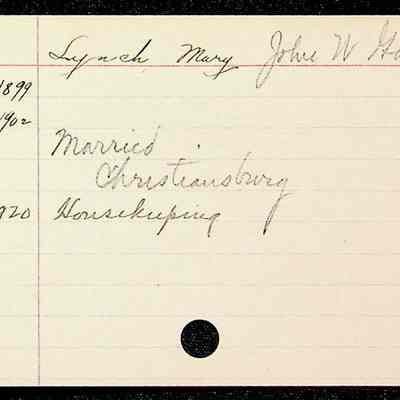 Lynch Mary John W
1899
1902
Married.
Christiansburg
1920 Housekeeping